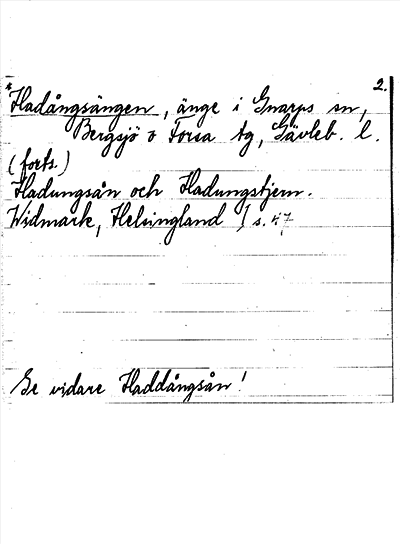 2.
*Hadångsängen, änge i Gnarps sn,
Bergsjö o Forsa tg, Gävleb. l.
(forts.)
Hadungsån och Hadungstjern.
Widmark, Helsingland I s. 47
Se vidare Haddångsån!